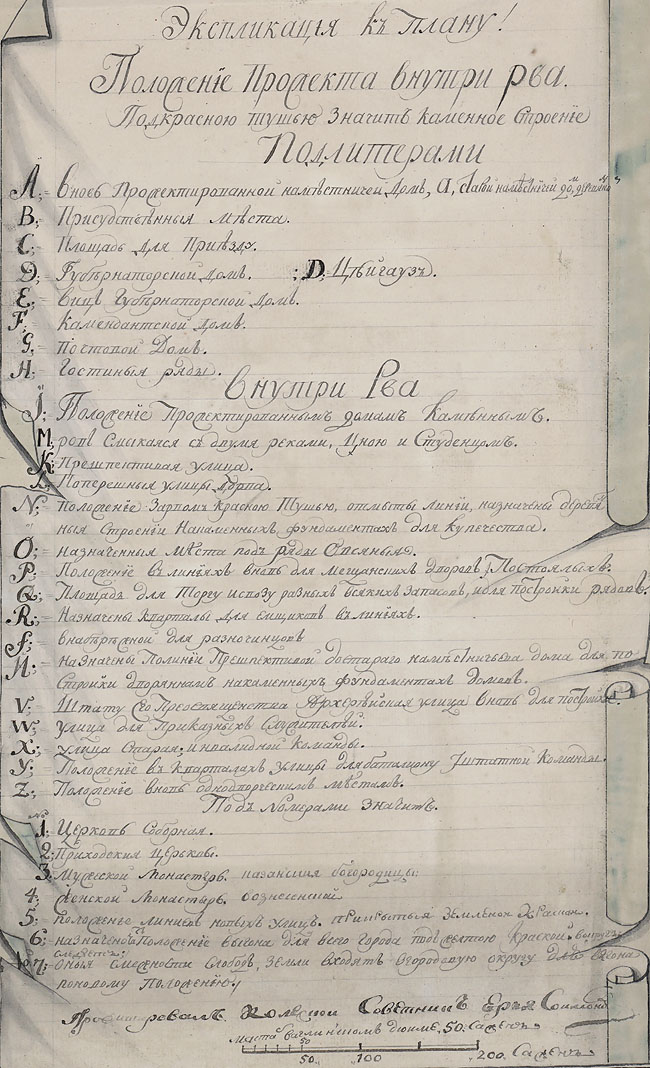 Экспликацїя къ плану!
Положенїе Прожекта внутри рва.
Подкрасною тушью значитъ каменное строенїе
Подлитерами
A, вновь Прожектированной намѣстничей домъ, a, старой намѣстничей домъ
B, Присудствѣнныя мѣста.
C, Площадь для Приѣзду.
D, Губѣрнаторской домъ. D, Цѣйгаузъ.
E, вицъ Губѣрнаторской домъ.
F, камендантской домъ.
G, постовой домъ.
H, Гостиныя ряды.
внутри Рва
J, Положенїе Прожектированнымъ домамъ камѣннымъ.
M, ровъ смыкаяся съ двумя реками, Цною и Студенцомъ.
K, Прешпективая улица.
L, Поперешныя улицы
N, Положенїе краскою тушью, отмыты линїи, назначены деревян
ныя строенїи накаменныхъ фундаментахъ для купечества.
O, назначенныя мѣста подъ ряды
P, Положенїе въ линїяхъ вновь для мещанскихъ дворовъ, Постоялыхъ.
Q, Площадь для торгу разныхъ всякихъ запасовъ, и для постройки рядовъ.
R, назначены кварталы для емщиковъ въ линїяхъ.
S, для разночинцовъ
U, назначены Полинїи Прешпективой достараго намѣстничьева дома для по
стройки дворяннамъ накаменныхъ фундаментахъ домовъ.
V, Штату его Преосвященства Архерѣйская улица вновь для постройки
W, улица для Приказныхъ служителѣй.
X, улица старая, инвалидной команды.
Y, Положенїе въ кварталахъ улицы для баталиону штатной команды.
Z, Положенїе вновь однодворческимъ мѣстамъ.
Подъ номерами значитъ.
1, Церковь Соборная.
2, Приходския церьковы.
3, Мужеской монастырь казанския богородицы;
4, женской монастырь вознесенской
5, положенїе линїевъ новыхъ улицъ
6, назначено Положенїе выгона для всего города под желтою краской
7, оныя смежности слободъ, земли входятъ вгородовую округу для выгона
поновому Положенью!
Прожектировалъ Советникъ
Маста въ аглинскомъ дюйме, 50. саженъ
50
50. 100 200. саженъ